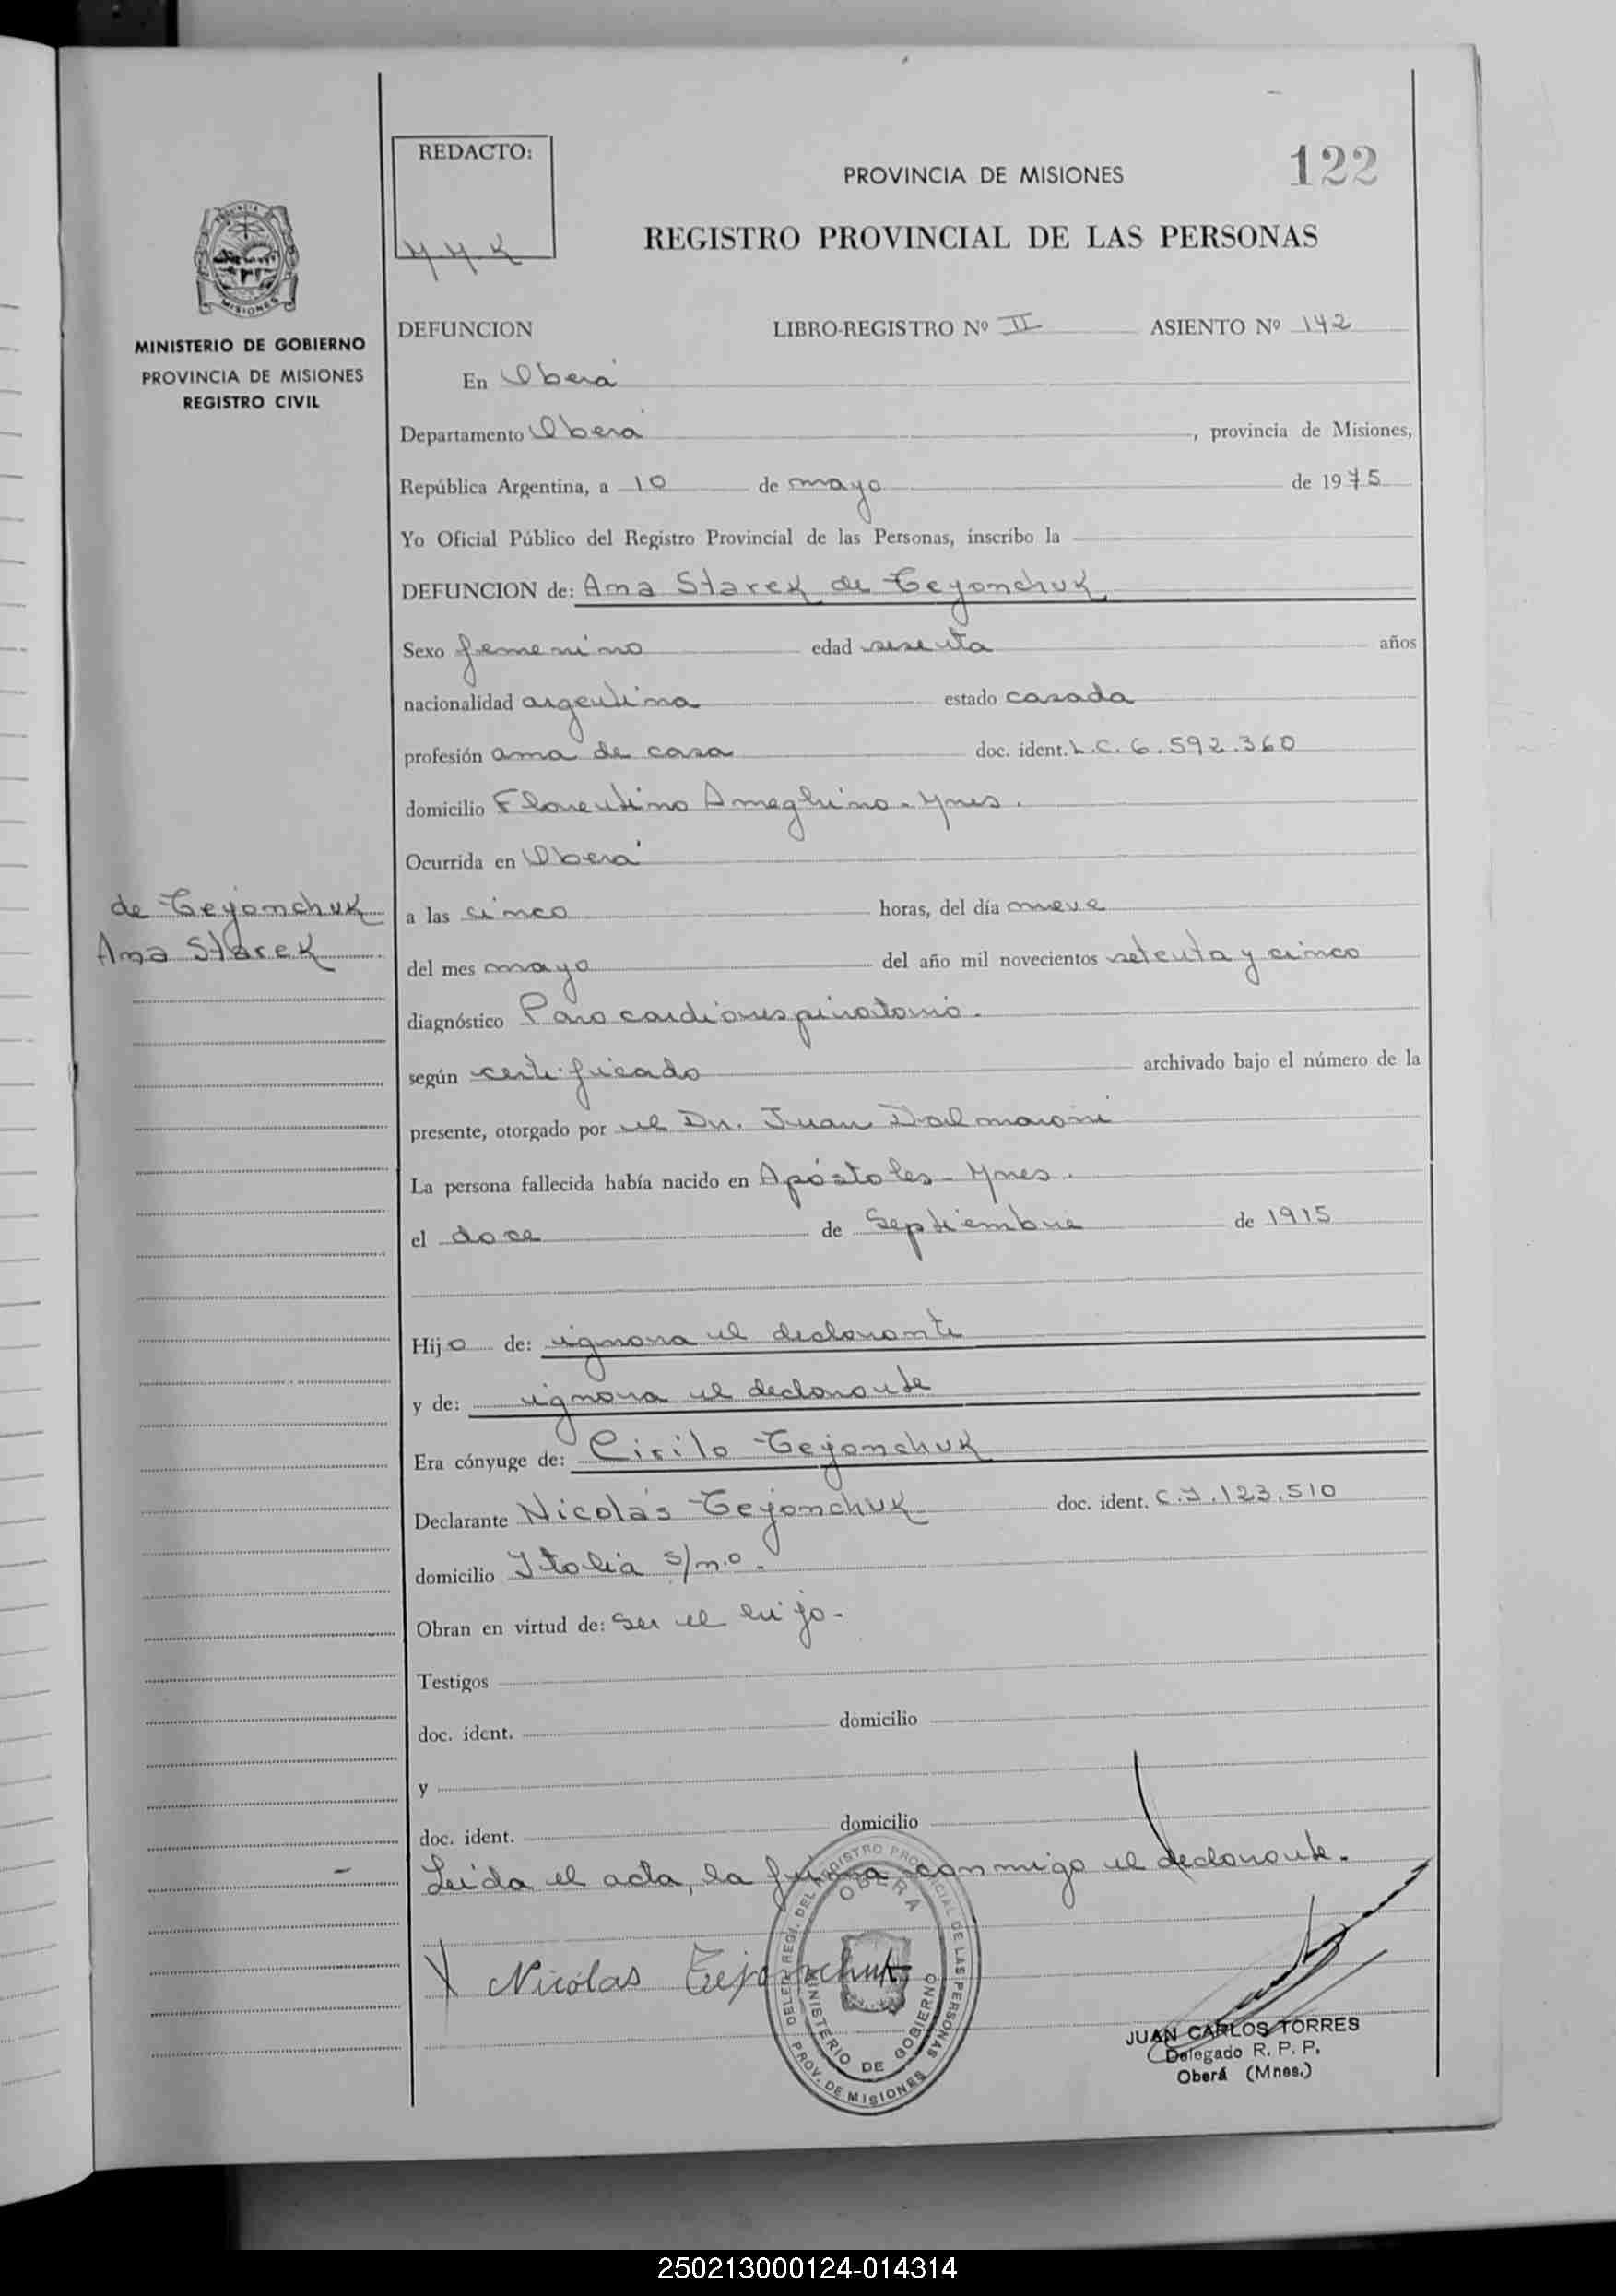 122
REDACTO:
PROVINCIA DE MISIONES
REGISTRO PROVINCIAL DE LAS PERSONAS
MINISTERIO DE GOBIERNO
PROVINCIA DE MISIONES
REGISTRO CIVIL
DEFUNCION LIBRO-REGISTRO Nº II ASIENTO Nº 142
En Oberá
Departamento Oberá, provincia de Misiones,
República Argentina, a 10 de mayo de 1975
Yo Oficial Público del Registro Provincial de las Personas, inscribo la
DEFUNCION de: Ana Starek de Teyonchuk
Sexo femenino edad sesenta años
nacionalidad argentina estado casada
profesión ama de casa doc. ident. L.C. 6.592.360
domicilio Florentino Ameghino - Mnes.
Ocurrida en Oberá
de Teyonchuk
Ana Starek
a las cinco horas, del día nueve
del mes mayo del año mil novecientos setenta y cinco
diagnóstico Paro cardiorespiratorio.
según certificado archivado bajo el número de la
presente, otorgado por el Dr. Juan Dalmaroni
La persona fallecida había nacido en Apóstoles - Mnes.
el doce de Septiembre de 1915
Hijo de: ignora el declarante
y de: ignora el declarante
Era cónyuge de: Cirilo Tejonchuk
Declarante Nicolás Tejonchuk doc. ident. C.I. 123.510
domicilio Italia s/n.o.
Obran en virtud de: Ser el hijo.-
Testigos
doc. ident. domicilio
y
doc. ident. domicilio
Leida el acta, la firma conmigo el declarante.
X Nicolas Tejonchuk
DEL REGISTRO PROVINCIAL DE LAS PERSONAS
OBERA
MINISTERIO DE GOBIERNO
PROV. DE MISIONES
JUAN CARLOS TORRES
Delegado R. P. P.
Oberá (Mnes.)
250213000124-014314